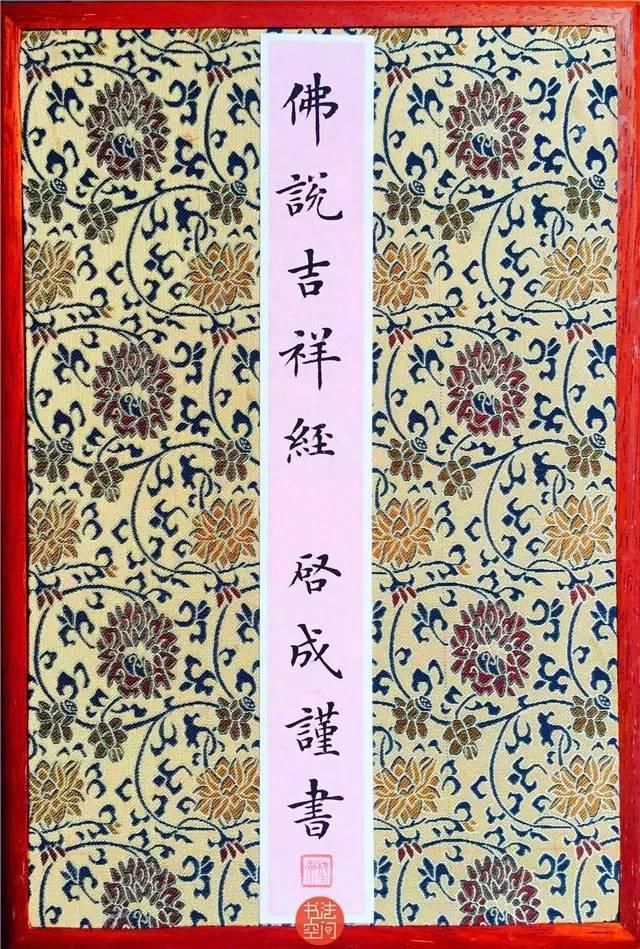 佛說吉祥經 啓成謹書
书法空间